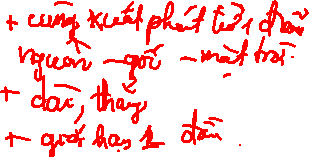 + cùng xuất phát từ 1 đầu
nguồn - gốc - mặt trời.
+ dài, thẳng
+ - giới hạn 1 đầu.